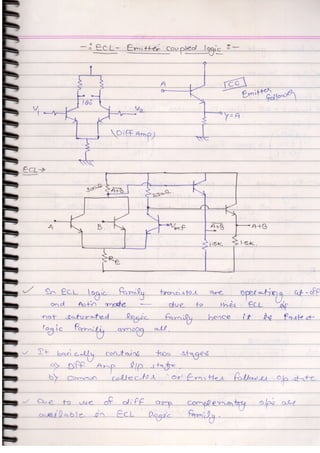 -: ECL - Emitter Coupled logic :-
A
CC
Emitter
follower
V1
V2
Y=A
(Diff Amp)
ECL→
A+B
A
B
Vref
A+B
A+B
1.5K
1.5K
RE
In ECL logic family transistors are operating cut-off
and Activ mode due to this ECL is
not saturated logic family hence it is fastest
logic family among all.
It basically contains two stages
a) Diff Amp i/p stage
b) Common collector or Emitter follower o/p state
Due to use of diff amp complementary o/p's are
available in ECL logic family.